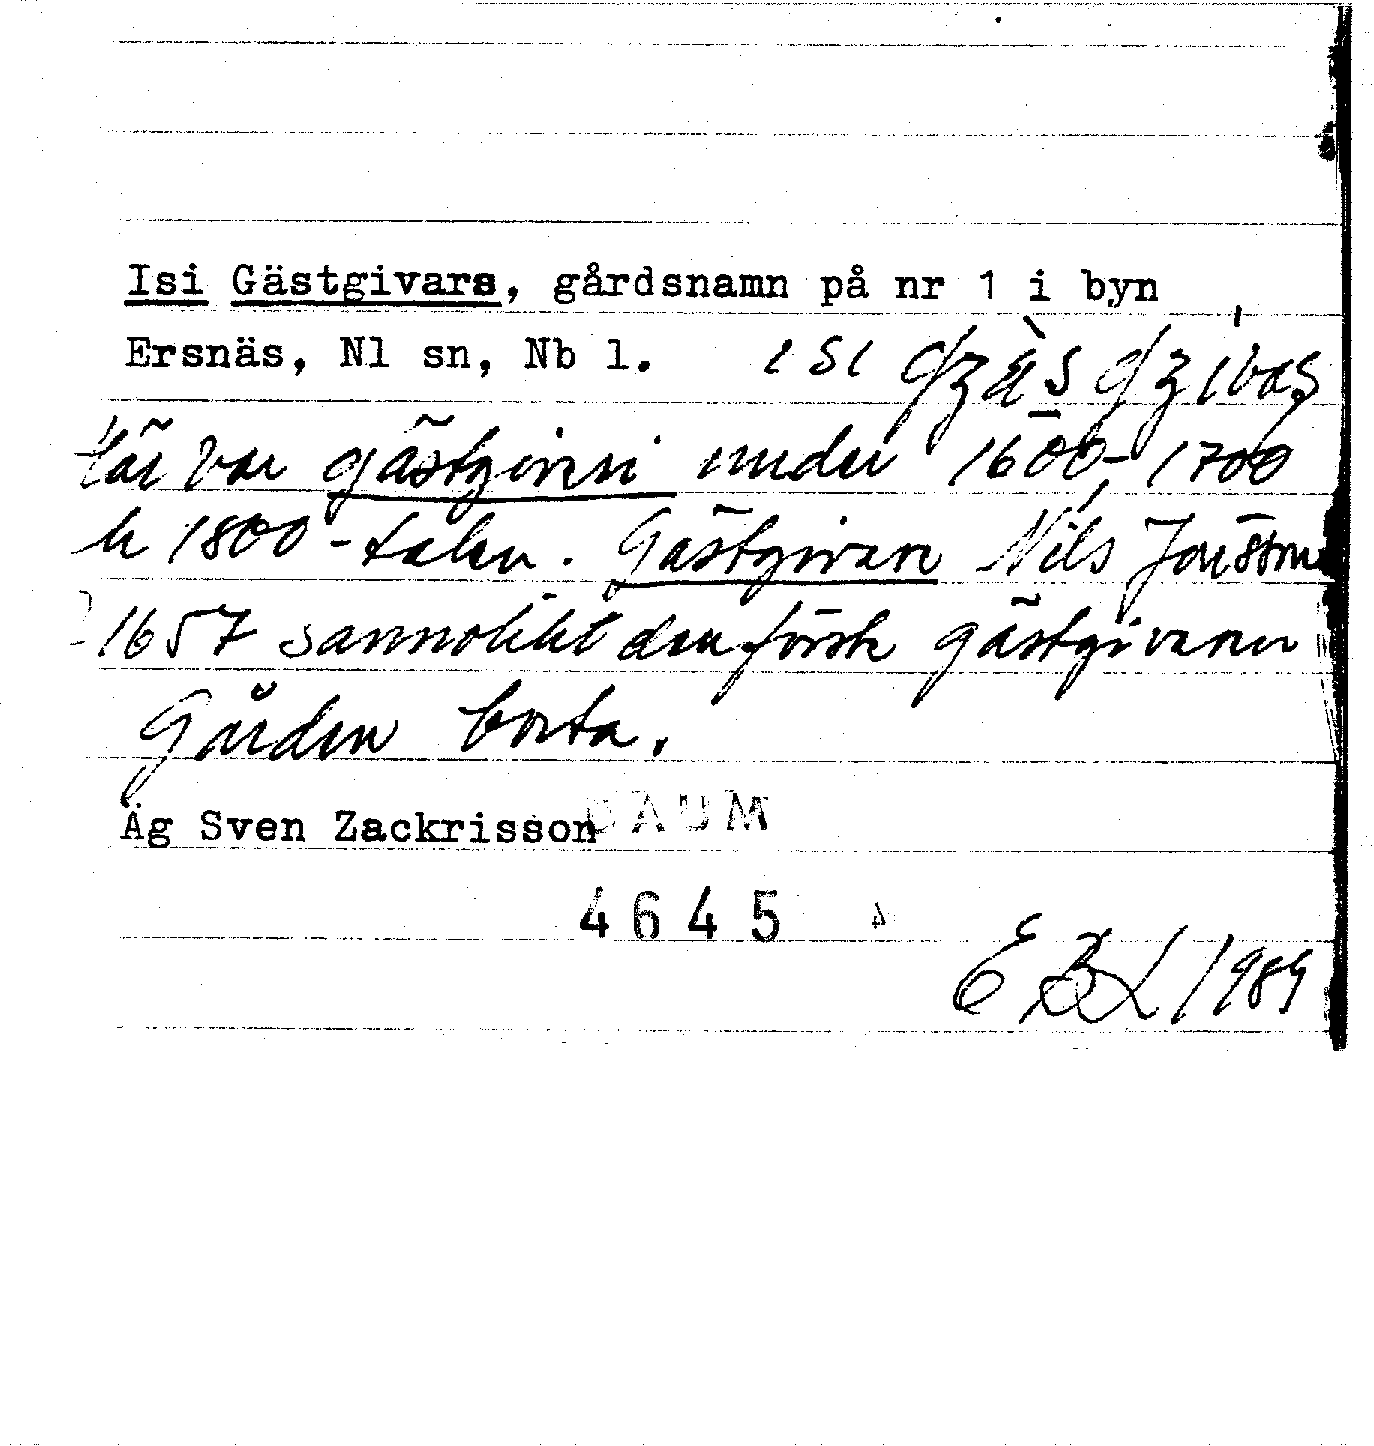 Isi Gästgivars, gårdsnamn på nr 1 i byn
Ersnäs, Nl sn, Nb l. isi
här var gästgiveri under 1600-, 1700
h 1800-talen. Gästgivare Nils Jonsson
1657 sannolikt den förste gästgivaren
Gården borta.
Äg Sven Zackrisson DAUM
4645
EBL 1989